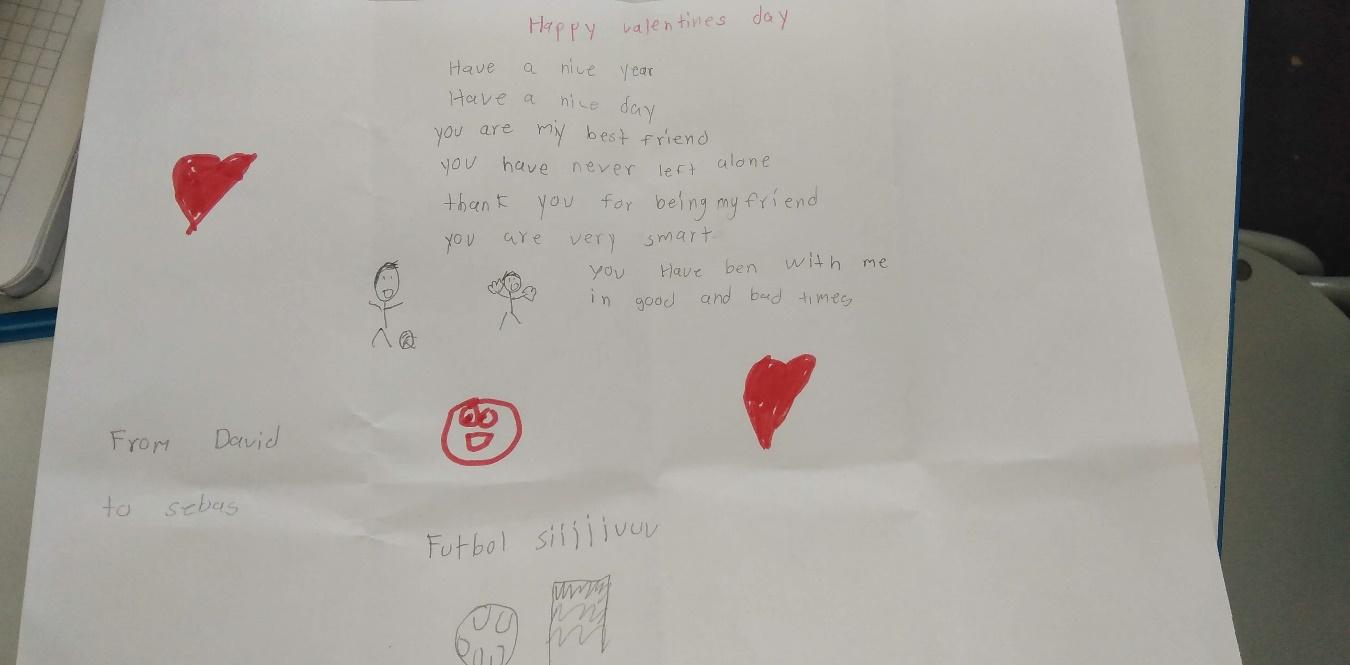 Happy valentines day
Have a nice year
Have a nice day
you are my best friend
you have never left alone
thank you for being my friend
you are very smart
you Have ben with me
in good and bad times
From David
to sebas
Futbol siijjivuv